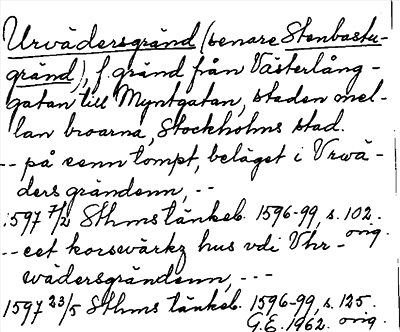 Urvädersgränd (senare Stenbastu-
gränd), f. gränd från Västerlång-
gatan till Myntgatan, staden mel-
lan broarna, Stockholms stad.
-- på eenn tompt, beläget i Vrwä-
ders grändenn, --
1597 7/2 Sthms tänkeb. 1596-99, s. 102.
orig.
-- eet korswärkz hus vdi Vhr-
wädersgrändenn, ---
1597 23/5 Sthms tänkeb. 1596-99, s. 125.
G.E. 1962. orig.